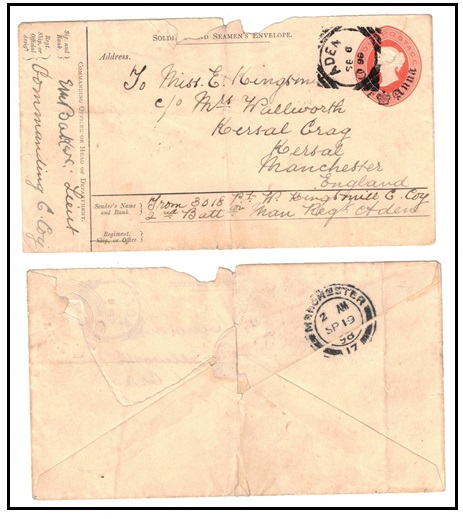 SOLDIERS' AND SEAMEN'S ENVELOPE.
Address.
To Miss. E. Kingsmill
c/o Mrs Wallworth
Kersal Crag
Kersal
Manchester
England
ADEN
Anna
Sender's Name and Rank.
From 3018 Pt. W. Kingsmill E. Coy
2nd Batt Man Regt Aden
Regiment, Ship, or Office
COMMANDING OFFICER OR HEAD OF DEPARTMENT.
Sig. and Rank.
Lieut
Regt. Ship, or Official design
Commanding E. Coy
MANCHESTER
2 AM
SP 19
17